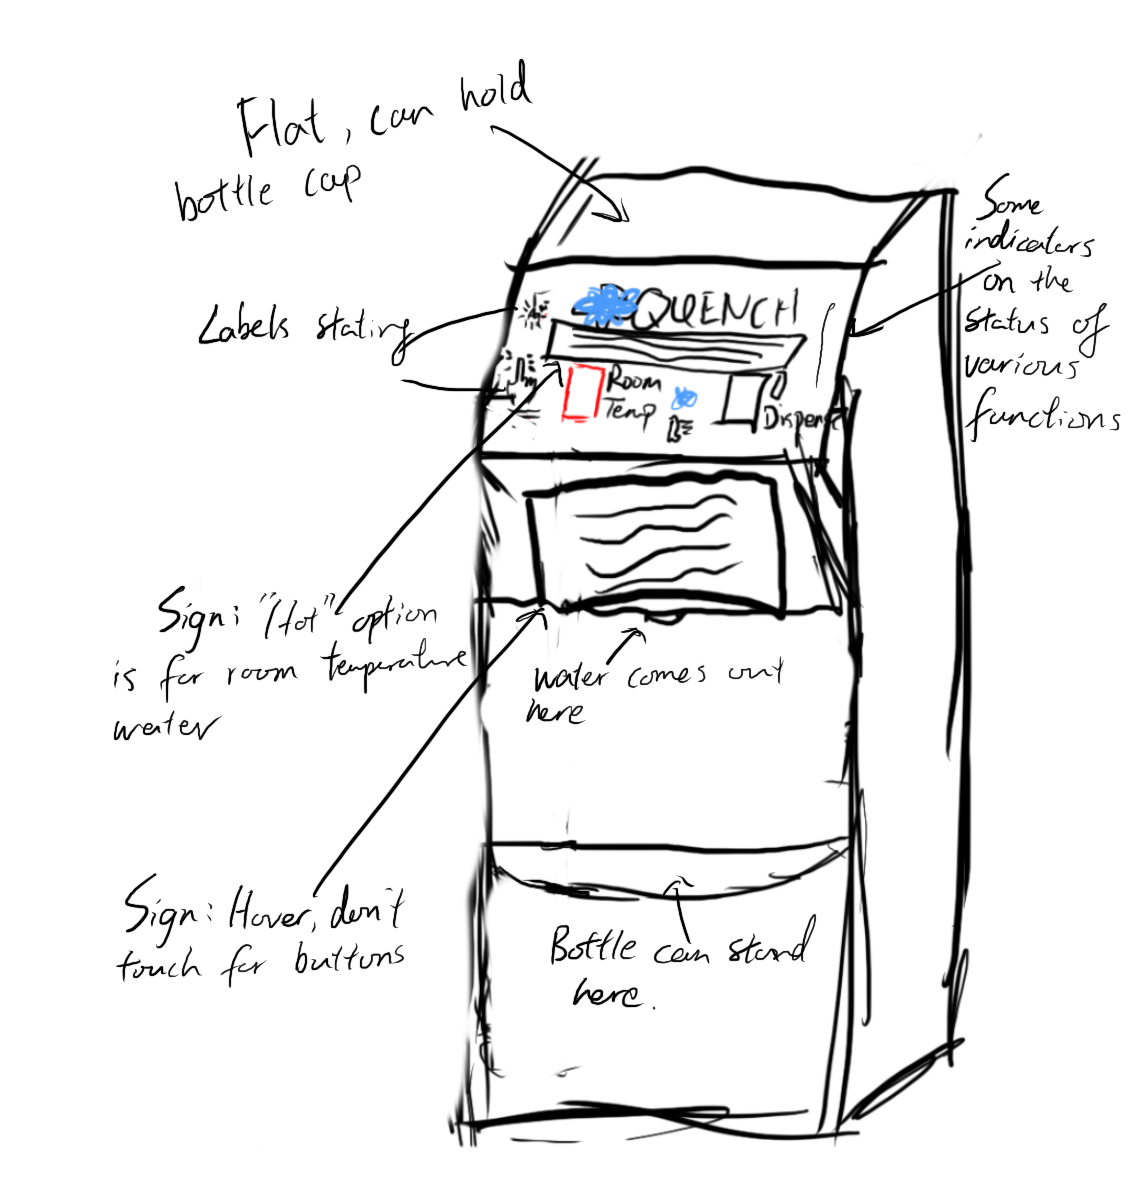 Flat, can hold
bottle cap
Some
indicators
on the
status of
various
functions
Labels stating
QUENCH
Room
Temp
Dispense
Sign: "Hot" option
is for room temperature
water
water comes out
here
Sign: Hover, don't
touch for buttons
Bottle can stand
here.